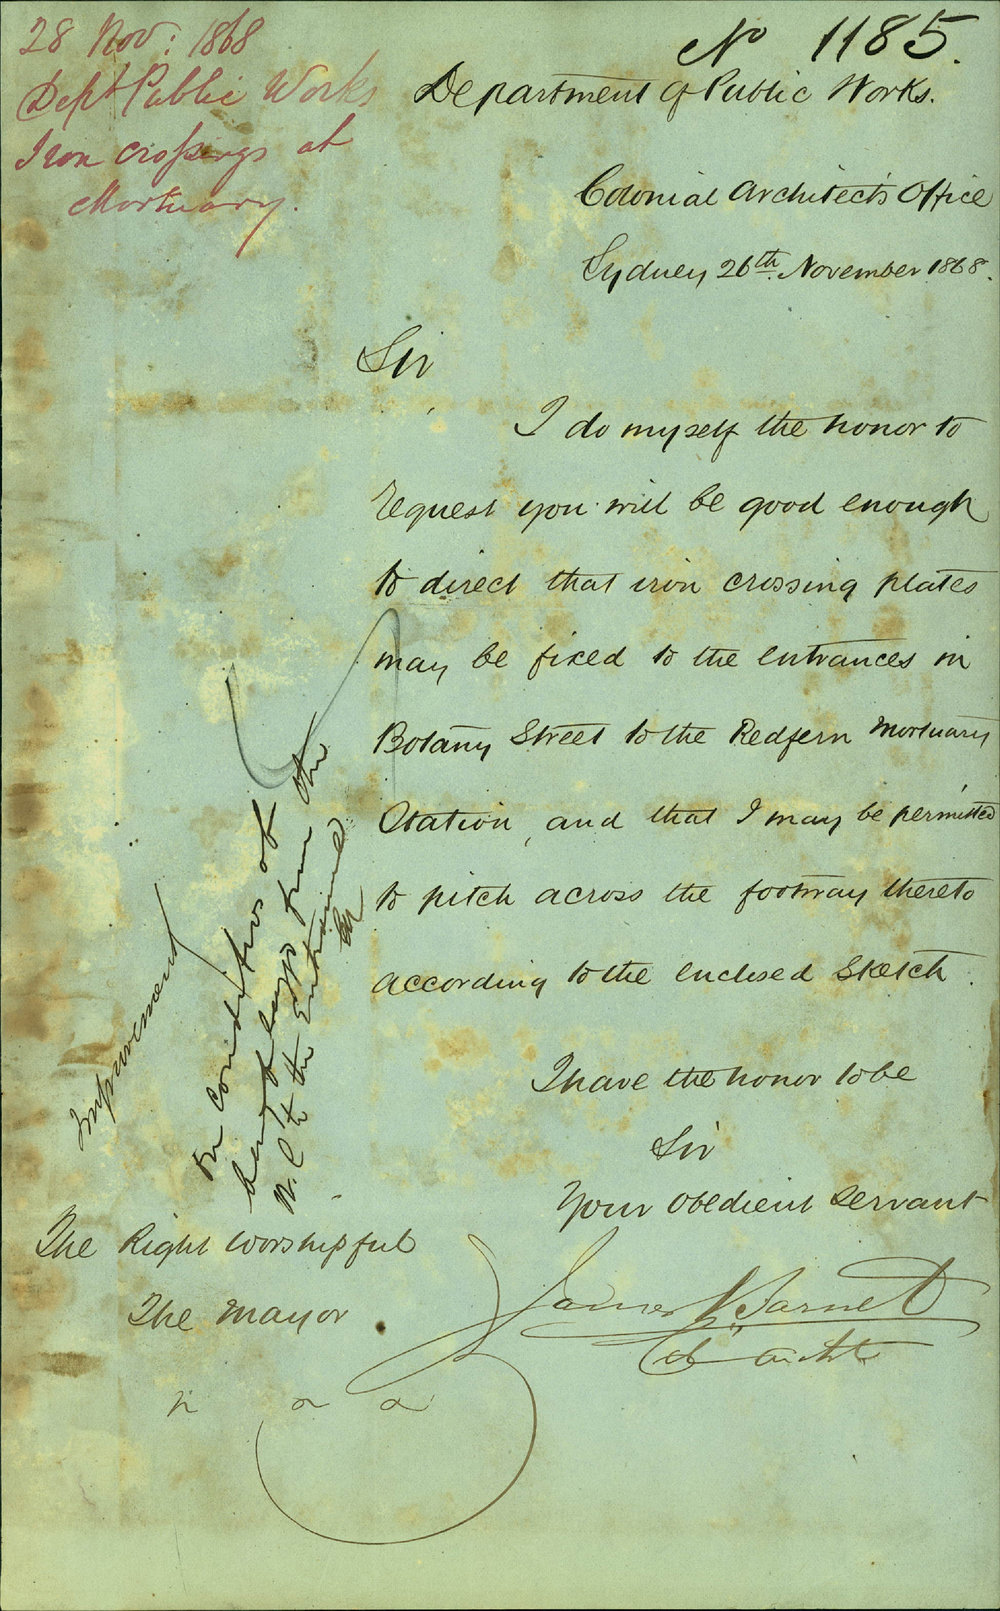 28 Nov: 1868
Dept Public Works
Iron crossings at
Mortuary.
No 1185.
Department of Public Works.
Colonial Architect's Office
Sydney 26th November 1868.
Sir
I do myself the honor to
request you will be good enough
to direct that iron crossing plates
may be fixed to the entrances in
Botany Street to the Redfern Mortuary
Station, and that I may be permitted
to pitch across the footway thereto
according to the enclosed Sketch.
I have the honor to be
Sir
Your Obedient Servant
James Barnet
Col Archt
The Right Worshipful
The Mayor
Improvement
on condition of
being from the
to the Entrance